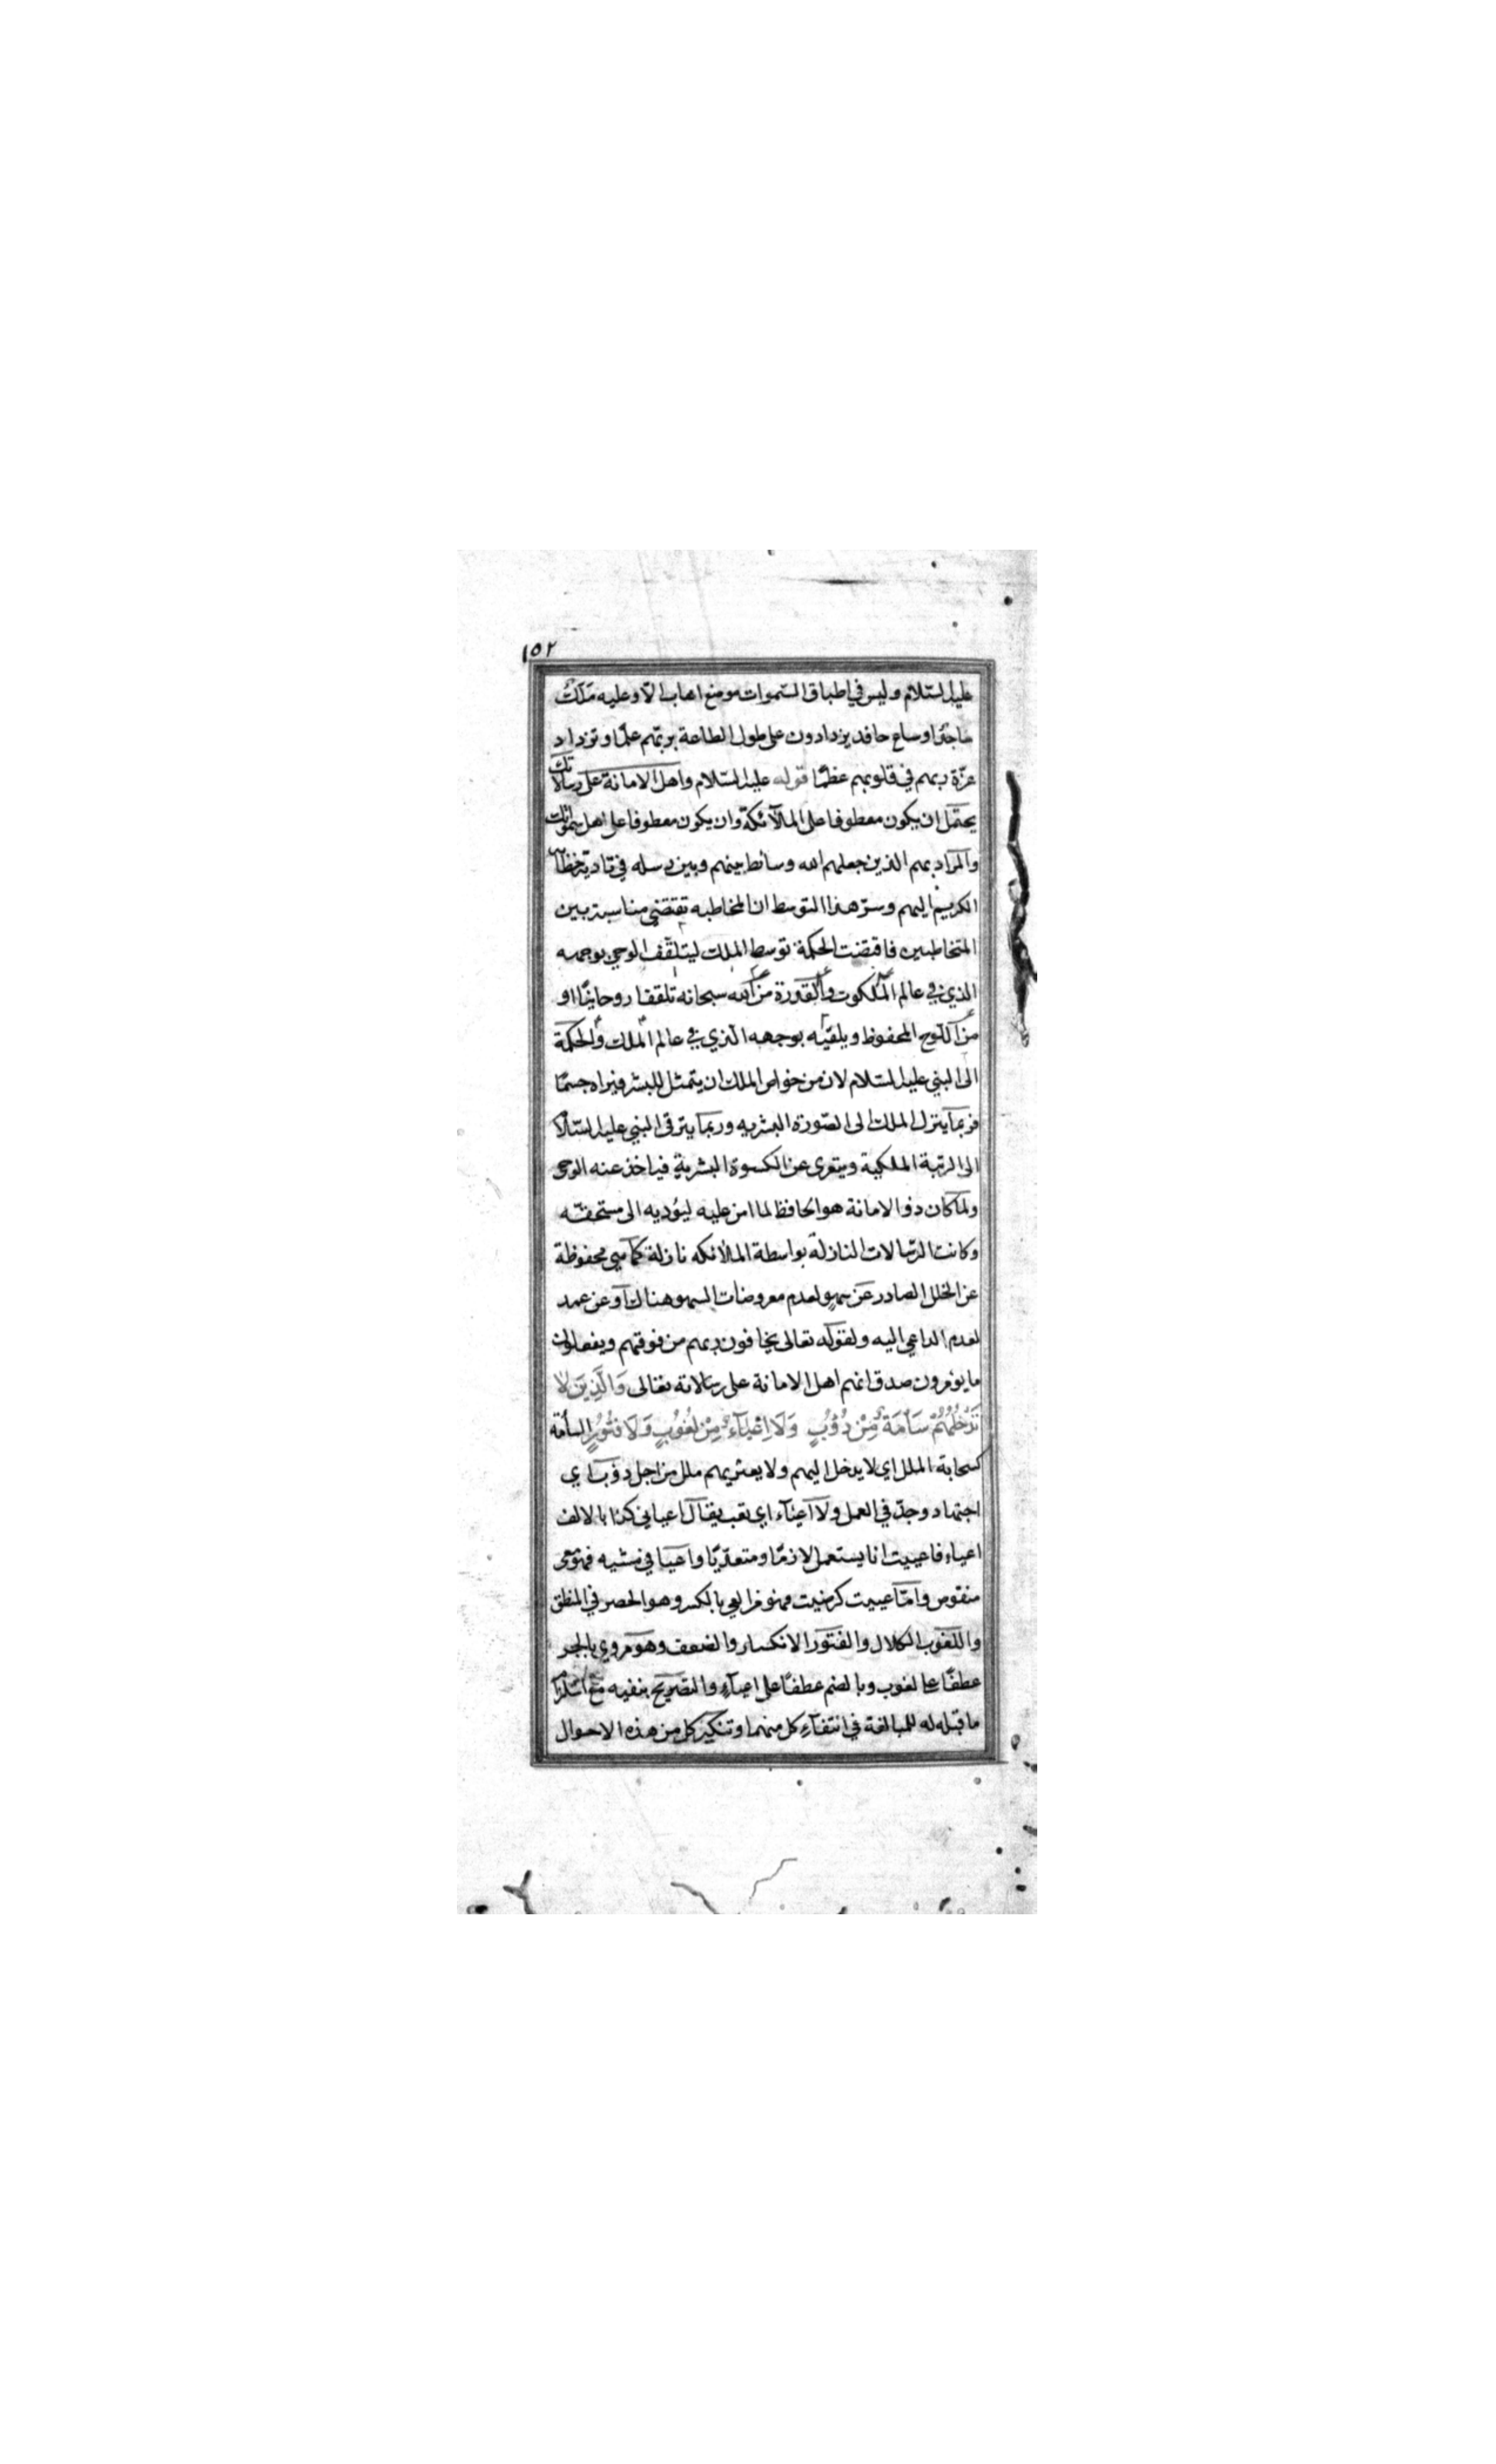 ١٥٢
عليه السّلام وليس في اطباق السّموات موضع اهاب الّا وعليه مَلَكٌ
ساجدٌ او ساع حافد يزدادون على طول الطاعة بربّهم علمًا وتزداد
عزّة ربهم في قلوبهم عظمًا قوله عليه السّلام واهل الامانة على رسالاتك
يحتمل ان يكون معطوفا على الملآئكة وان يكون معطوفا على اهل سمواتك
والمراد بهم الذين جعلهم الله وسائط بينهم وبين رسله في تادية خطابه
الكريم اليهم وسرّ هذا التوسط ان المخاطبه تقتضي مناسبة بين
المتخاطبين فاقتضت الحكمة توسط الملك ليتلقّف الوحي بوجهه
الذي في عالم الملكوت والقدرة من الله سبحانه تلقفا روحانيّا او
من اللّوح المحفوظ ويلقيه بوجهه الّذي في عالم الملك والحكمة
الى النبي عليه السّلام لان من خواص الملك ان يتمثل للبشر فيراه جسمًا
فربما ينزل الملك الى الصّورة البشريه وربما يترقى النبي عليه السّلام
الى الرتبة الملكية ويتعرى عن الكسوة البشرية فياخذ عنه الوحى
ولمّا كان ذو الامانة هو الحافظ لما امن عليه ليؤديه الى مستحقّه
وكانت الرّسالات النازلة بواسطة الملائكه نازلة كما هي محفوظة
عن الخلل الصادر عن سهو لعدم معروضات السهو هناك او عن عمد
لعدم الداعي اليه ولقوله تعالى يخافون ربهم من فوقهم ويفعلون
ما يؤمرون صدق انهم اهل الامانة على رسالاته تعالى وَالَّذِينَ لَا
تَدْخُلُهُمْ سَأْمَةٌ مِنْ دُؤُبٍ وَلَا اِعْيَآءٌ مِنْ لُغُوبٍ وَلَا فُتُورٌ السأمة
كسحابة الملل اي لا يدخل اليهم ولا يعتريهم ملل من اجل دؤب اي
اجتهاد وجدّ في العمل ولا اعيآء اي تعب يقال اعياني كذا بالالف
اعياء فاعييت انا يستعمل لازمًا ومتعدّيّا واعيا في مشيه فهو معى
منقوص وامّا عييت كرضيت فهو من العي بالكسر وهو الحصر في المنطق
واللّغوب الكلال والفتور الانكسار والضعف وهو مروي بالجر
عطفًا على لغوب وبالضم عطفًا على اعيآء والتصريح بنفيه مع استلزام
ما قبله له للمبالغة في انتفآء كل منهما وتنكير كل من هذه الاحوال